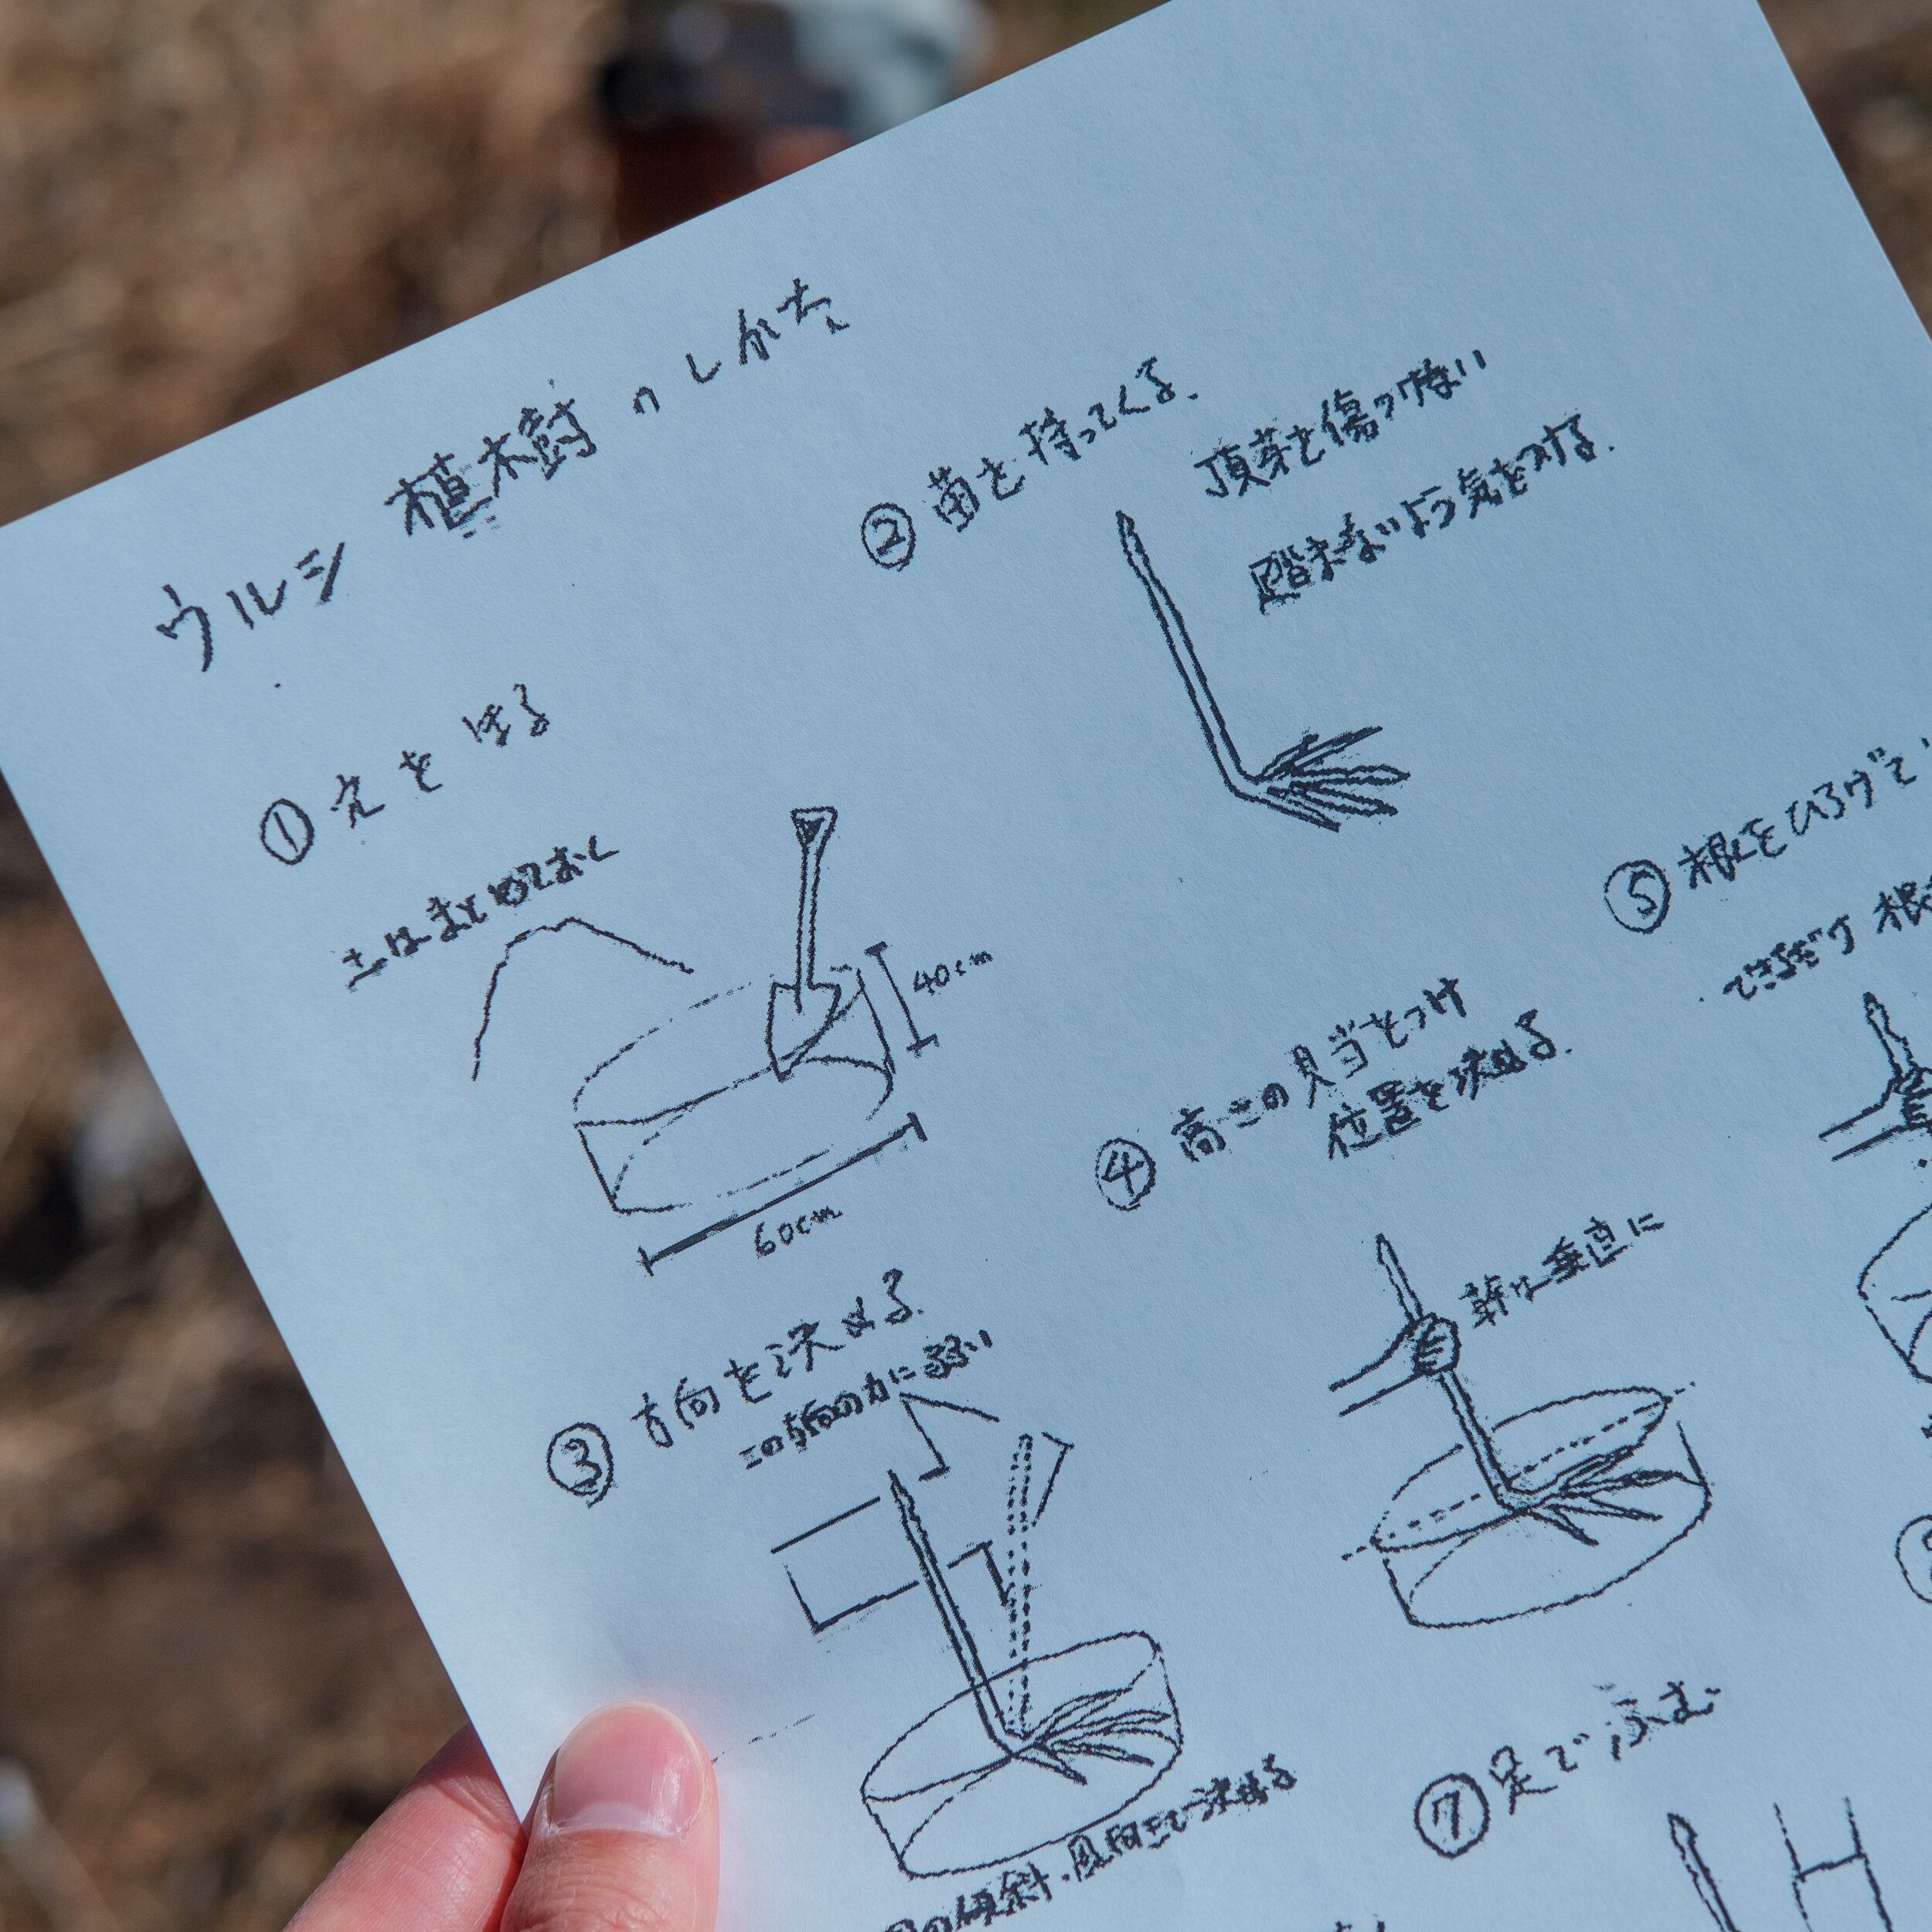 ウルシ 植樹のしかた
① 穴をほる
土はまとめておく
40cm
60cm
② 苗を持ってくる。
頂芽を傷つけない
踏まないよう気をつける。
③ 方向を決める。
この方向の力に弱い
の傾斜・風向きで決める
④ 高さの見当をつけ
位置を決める。
幹は垂直に
⑤ 根をひろげて
できるだけ 根
⑦ 足でふむ